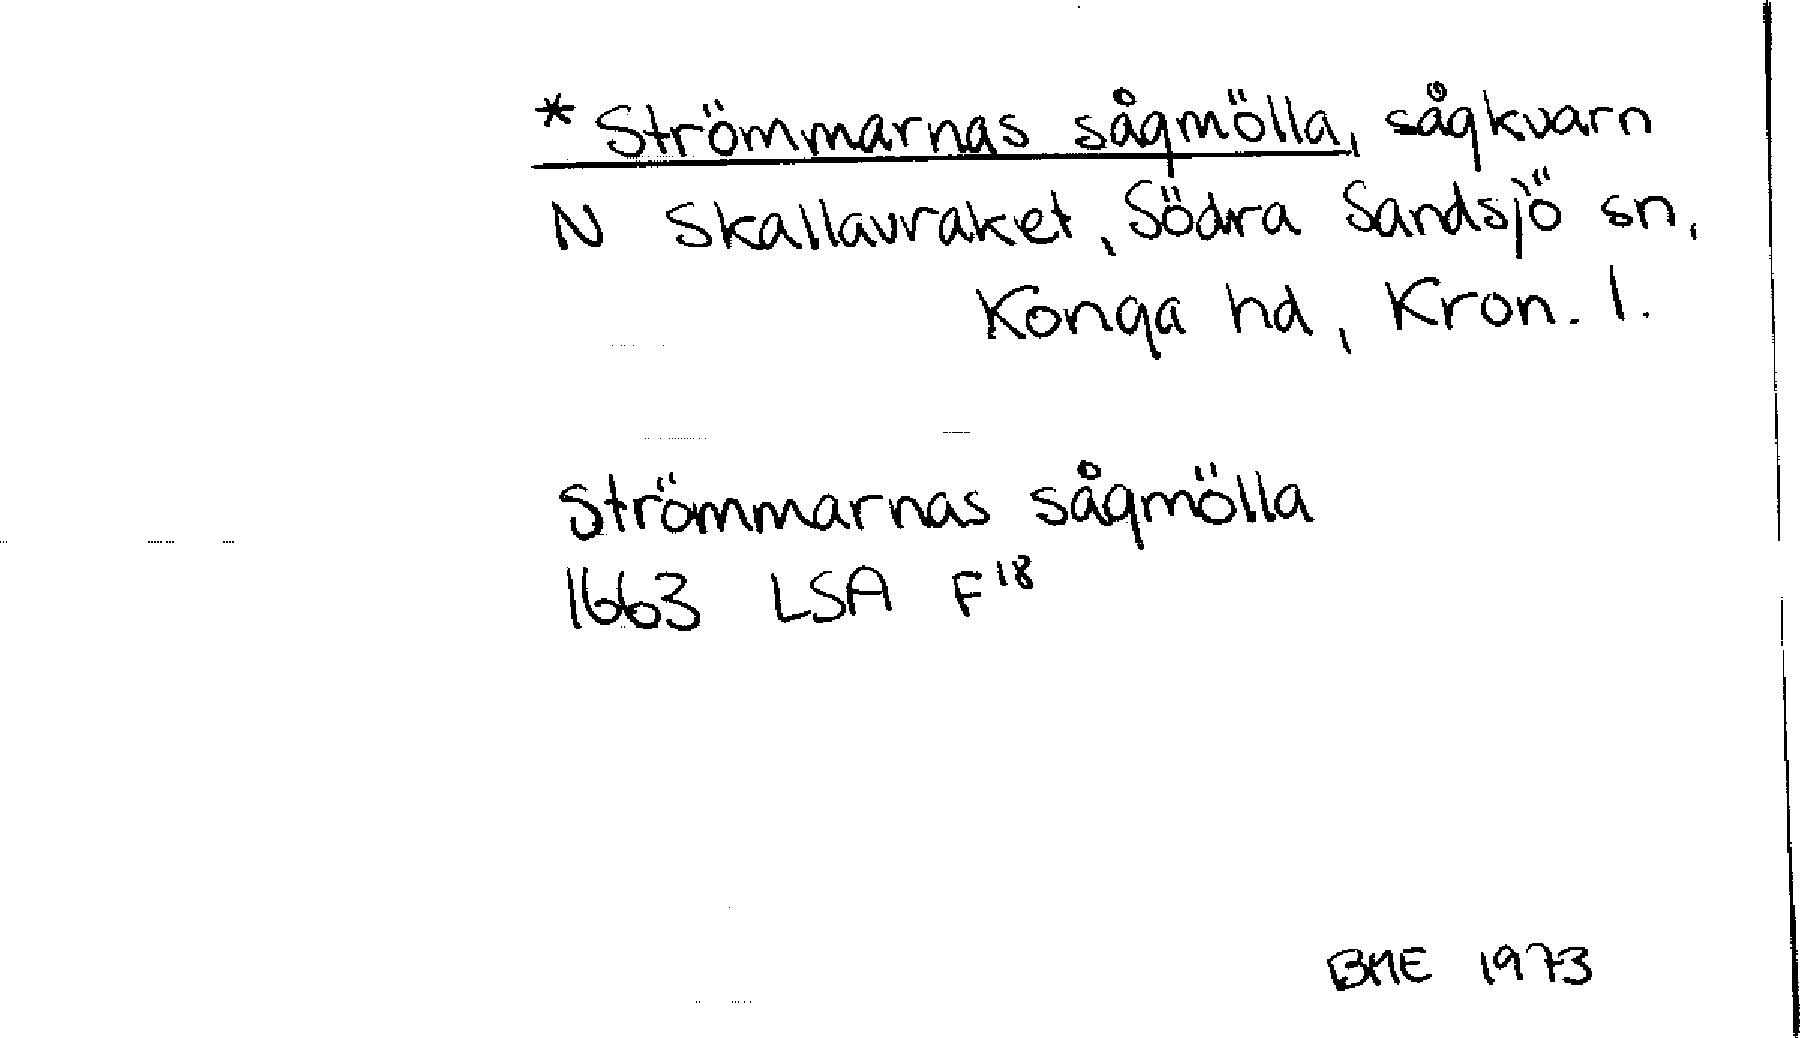 * Strömmarnas sågmölla, sågkvarn
N Skallavraket, Södra Sandsjö sn,
Konga hd, Kron. l.
Strömmarnas sågmölla
1663 LSA F18
BME 1973